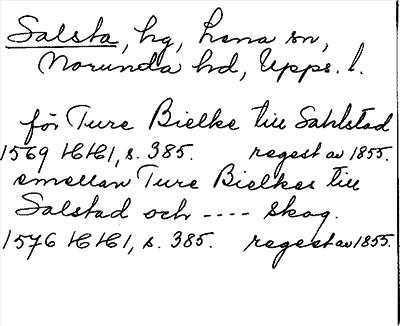 Salsta, hg, Lena sn,
Norunda hd, Upps. l.
för Ture Bielke till Sahlstad
1569 HH1, s. 385. regest av 1855.
emellan Ture Bielkes till
Salstad och ---- Skog.
1576 HH1, s. 385. regest av 1855.